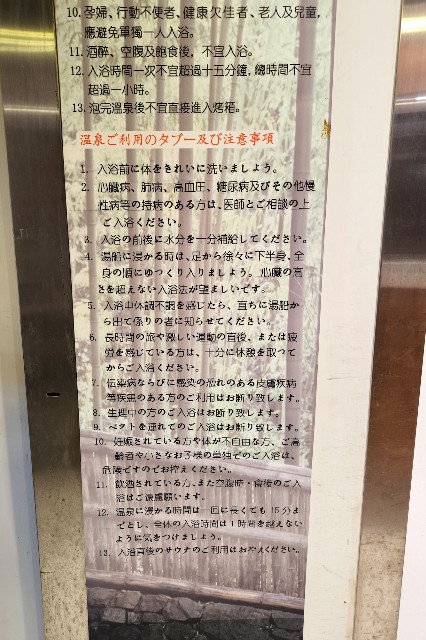 10. 孕婦、行動不便者、健康欠佳者、老人及兒童,
應避免單獨一人入浴。
11. 酒醉、空腹及飽食後,不宜入浴。
12. 入浴時間一次不宜超過十五分鐘,總時間不宜
超過一小時。
13. 泡完溫泉後不宜直接進入烤箱。
温泉ご利用のタブー及び注意事項
1. 入浴前に体をきれいに洗いましょう。
2. 心臓病、肺病、高血圧、糖尿病及びその他慢
性病等の持病のある方は、医師とご相談の上
ご入浴ください。
3. 入浴の前後に水分を一分補給してください。
4. 湯船に浸かる時は、足から徐々に下半身、全
身の順にゆつくり入りましょう。心臓の高
さを超えない入浴法が望ましいです。
5. 入浴中体調不調を感じたら、直ちに湯船か
ら出て係りの者に知らせてください。
6. 長時間の旅や激しい運動の直後、または疲
労を感じている方は、十分に休憩を取って
からご入浴ください。
7. 伝染病ならびに感染の恐れのある皮膚疾病
等疾患のある方のご利用はお断り致します。
8. 生理中の方のご入浴はお断り致します。
9. ペットを連れてのご入浴はお断り致します。
10. 妊娠されている方や体が不自由な方、ご高
齢者や小さなお子様の単独でのご入浴は、
危険ですのでお控えください。
11. 飲酒されている方、また空腹時・食後のご入
浴はご遠慮願います。
12. 温泉に浸かる時間は一回に長くても 15 分ま
でとし、全体の入浴時間は 1 時間を越えない
ように気をつけましょう。
13. 入浴直後のサウナのご利用はおやめください。